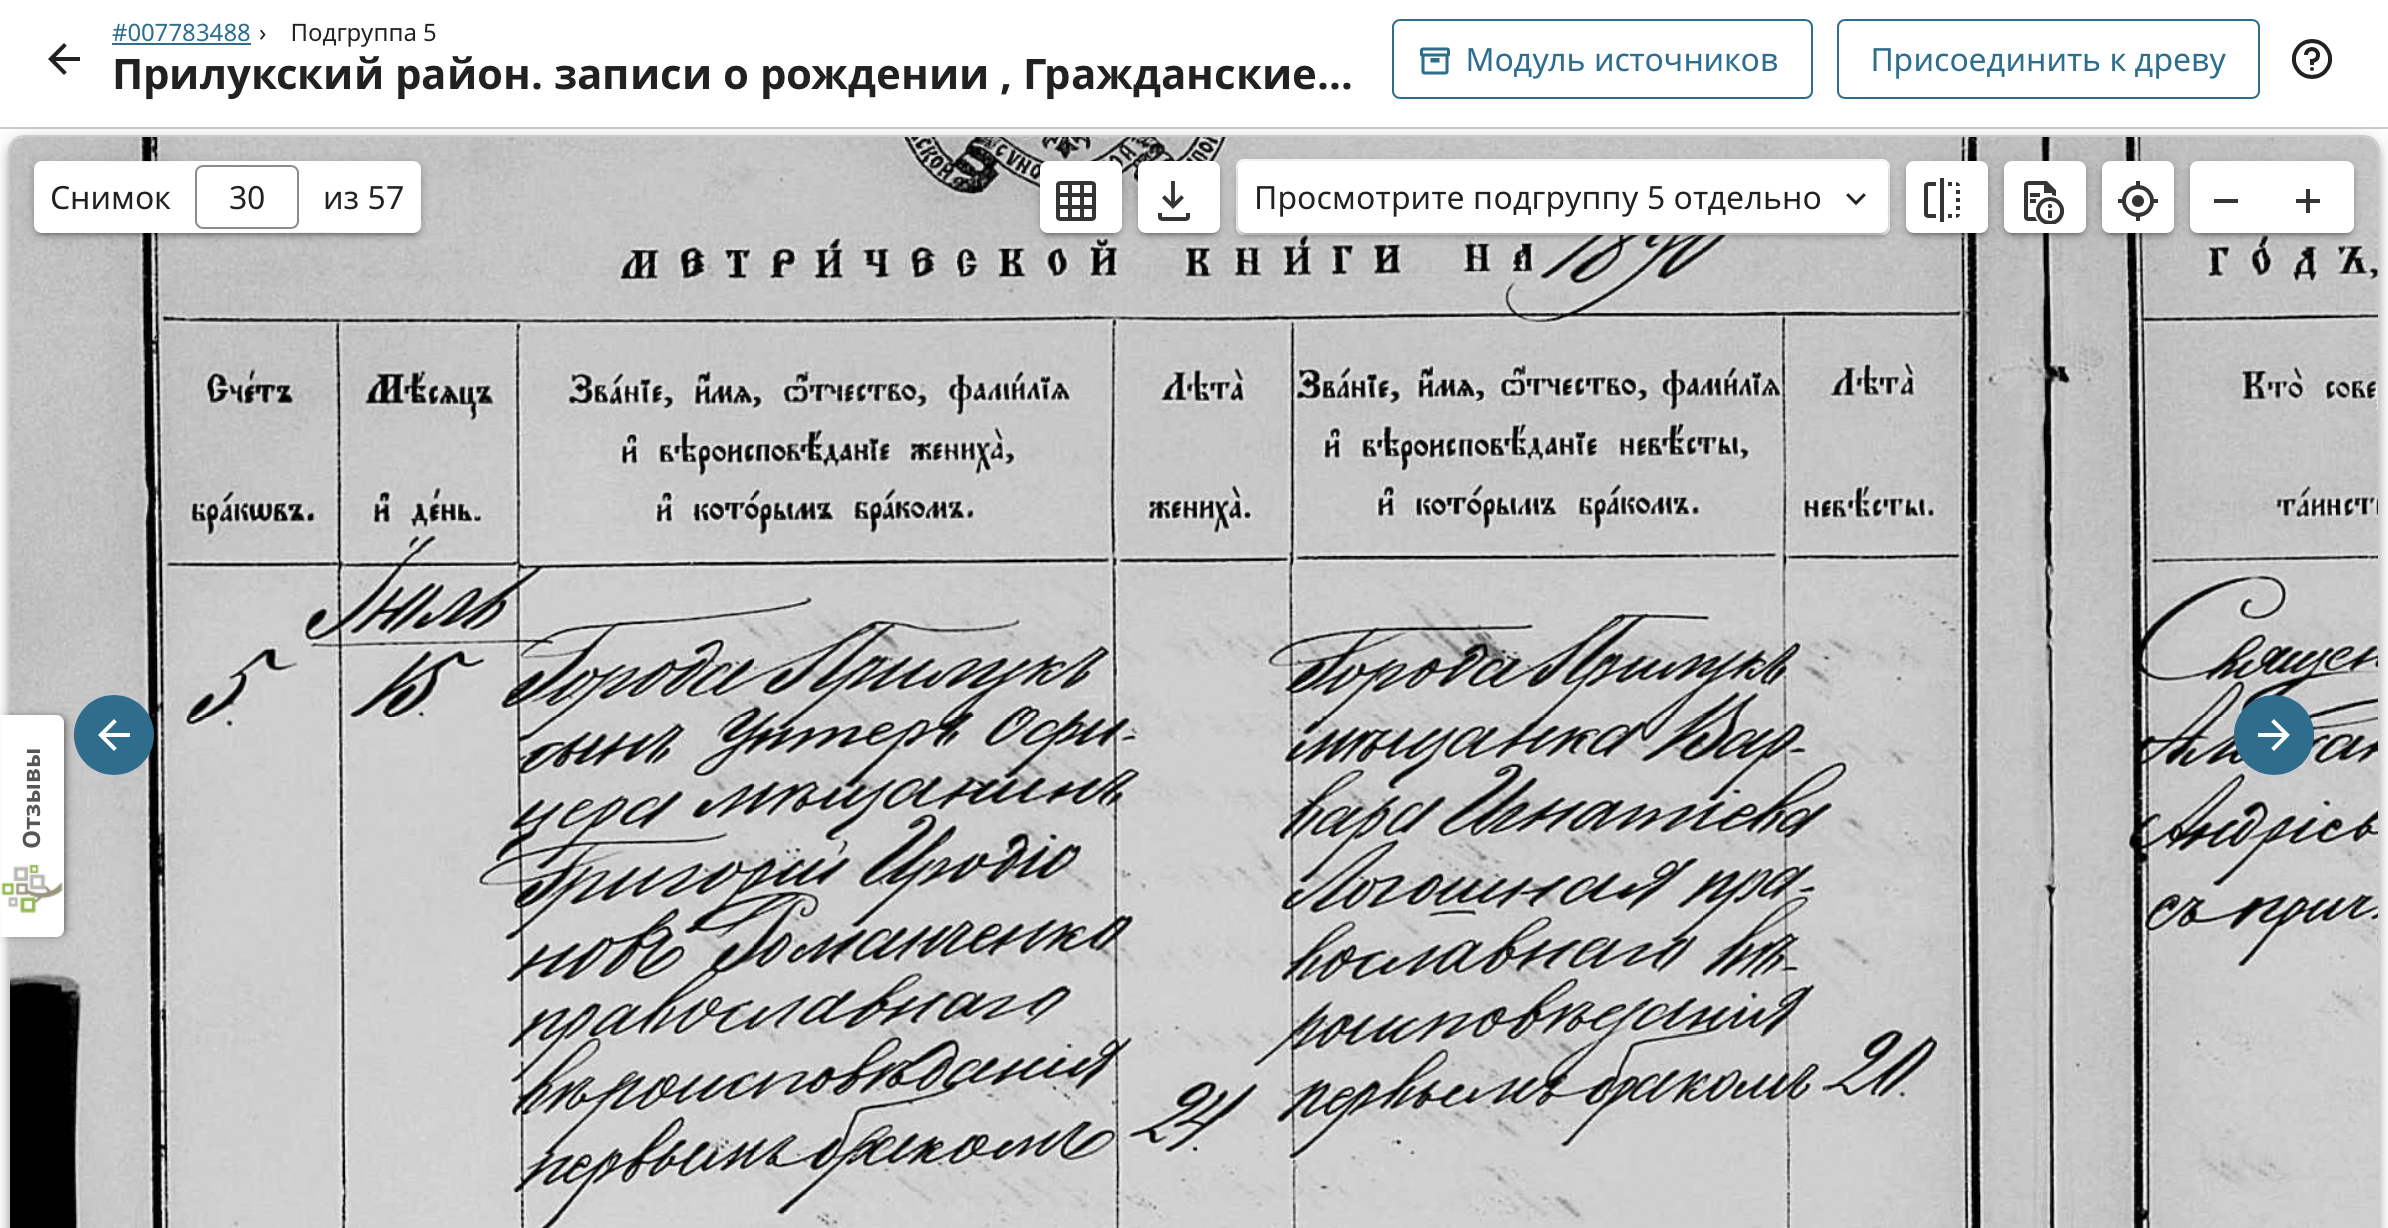 #007783488 › Подгруппа 5
Прилукский район. записи о рождении , Гражданские...
Модуль источников
Присоединить к древу
Снимок 30 из 57
Просмотрите подгруппу 5 отдельно
Отзывы
МЕТРИ́ЧЕСКОЙ КНИ́ГИ НА 1890
ГО́ДЪ,
Сче́тъ
бра́кѡвъ.
Мѣ́сяцъ
и҆ де́нь.
Зва́нїе, и҆́мѧ, ѻ҆́тчество, фами́лїѧ
и҆ вѣроисповѣ́данїе жениха̀,
и҆ кото́рымъ бра́комъ.
Лѣта̀
жениха̀.
Зва́нїе, и҆́мѧ, ѻ҆́тчество, фами́лїѧ
и҆ вѣроисповѣ́данїе невѣ́сты,
и҆ кото́рымъ бра́комъ.
Лѣта̀
невѣ́сты.
Кто̀ сове
та́инст
Іюль
5. 15.
Города Прилукъ
сынъ Унтеръ Офи-
цера мѣщанинъ
Григорій Иродіо
новъ Романченко
православнаго
вѣроисповѣданія
первымъ бракомъ
24.
Города Прилукъ
мѣщанка Вар-
вара Игнатіева
Логошная пра-
вославнаго вѣ-
роисповѣданія
первымъ бракомъ
20.
Священ
Андріев
съ прич